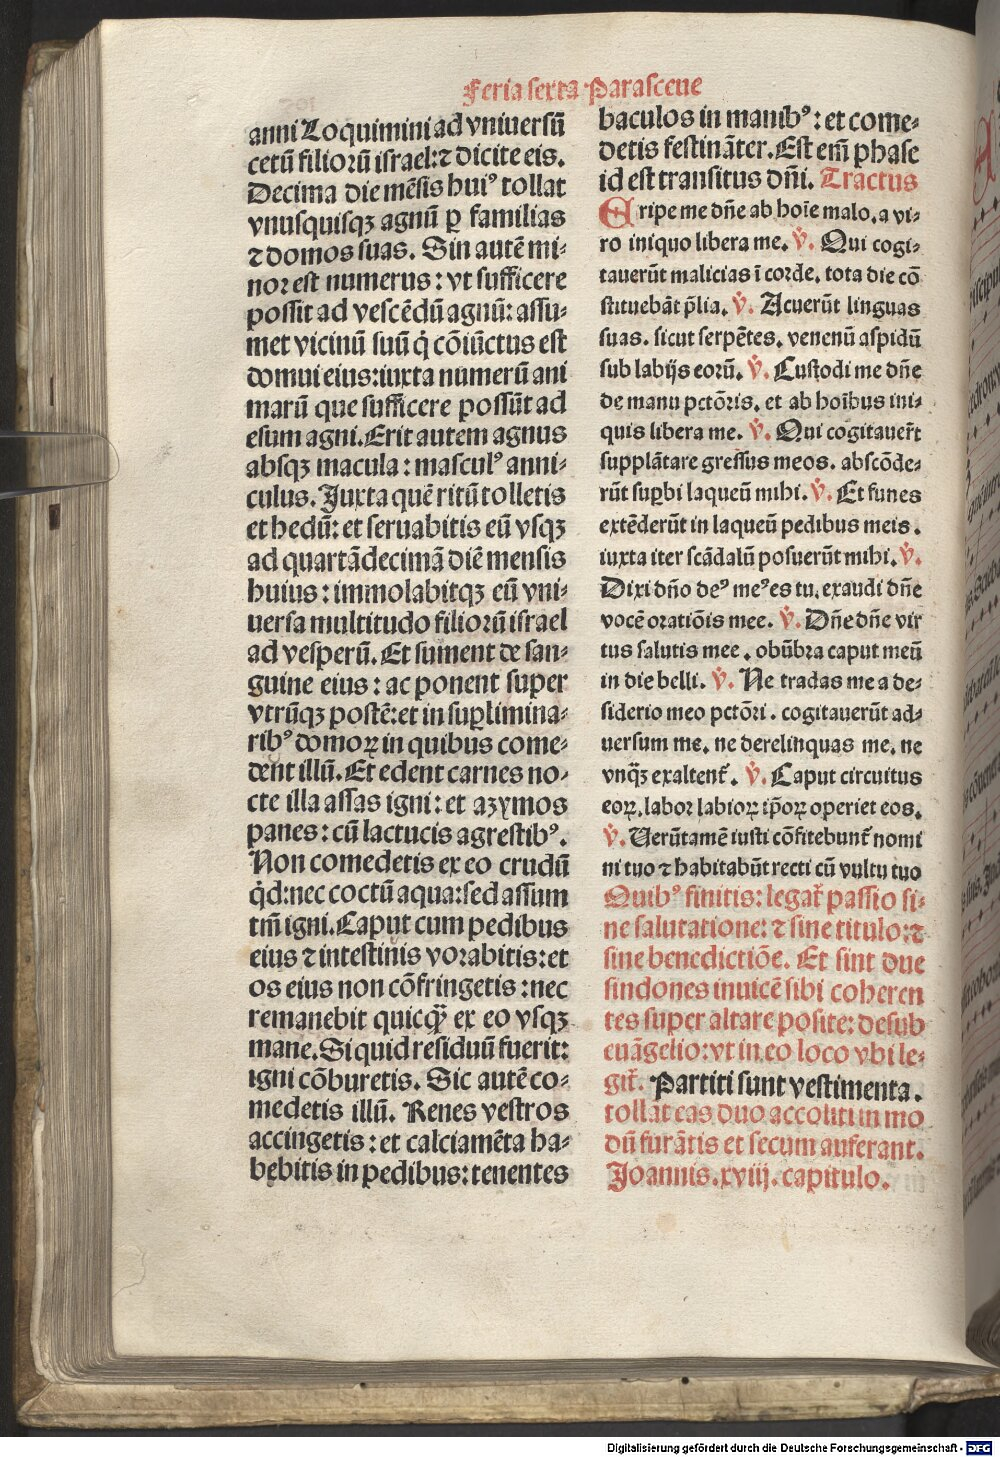 Feria sexta Parasceue
anni Loquimini ad vniuersū
cetū filioꝛū israel: ⁊ dicite eis.
Decima die mēsis huiꝰ tollat
vnusquisqꝫ agnū ꝑ familias
⁊ domos suas. Sin autē mi⸗
noꝛ est numerus: vt sufficere
possit ad vescēdū agnū: assu⸗
met vicinū suū q̇ cōiūctus est
domui eius: iuxta numerū ani
marū que sufficere possūt ad
esum agni. Erit autem agnus
absqꝫ macula: masculꝰ anni⸗
culus. Juxta quē ritū tolletis
et hedū: et seruabitis eū vsqꝫ
ad quartādecimā diē mensis
huius: immolabitqꝫ eū vni⸗
uersa multitudo filioꝛū israel
ad vesperū. Et sument de san⸗
guine eius: ac ponent super
vtrūqꝫ postē: et in suꝑlimina⸗
ribꝰ domoꝝ in quibus come⸗
dent illū. Et edent carnes no⸗
cte illa assas igni: et azymos
panes: cū lactucis agrestibꝰ.
Non comedetis ex eo crudū
q̇d: nec coctū aqua: sed assum
tm̄ igni. Caput cum pedibus
eius ⁊ intestinis voꝛabitis: et
os eius non cōfringetis: nec
remanebit quicqȝ̄ ex eo vsqꝫ
mane. Si quid residuū fuerit:
igni cōburetis. Sic autē co⸗
medetis illū. Renes vestros
accingetis: et calciamēta ha⸗
bebitis in pedibus: tenentes
baculos in manibꝰ: et come⸗
detis festināter. Est em̄ phase
id est transitus dn̄i. Tractus
Eripe me dn̄e ab hoīe malo. a vi⸗
ro iniquo libera me. ℣. Qui cogi⸗
tauerūt malicias ī corde. tota die cō
stituebāt p̄lia. ℣. Acuerūt linguas
suas. sicut serpētes. venenū aspidū
sub labijs eorū. ℣. Custodi me dn̄e
de manu pctōris. et ab hoībus ini⸗
quis libera me. ℣. Qui cogitauer̄t
supplātare gressus meos. abscōde⸗
rūt suꝑbi laqueū mihi. ℣. Et funes
extēderūt in laqueū pedibus meis.
iuxta iter scādalū posuerūt mihi. ℣.
Dixi dn̄o deꝰ meꝰ es tu. exaudi dn̄e
vocē oratiōis mee. ℣. Dn̄e dn̄e vir
tus salutis mee. obūbra caput meū
in die belli. ℣. Ne tradas me a de⸗
siderio meo pctōri. cogitauerūt ad⸗
uersum me. ne derelinquas me. ne
vnqȝ̄ exaltent᷑. ℣. Caput circuitus
eoꝝ. laboꝛ labioꝝ ip̄oꝝ operiet eos.
℣. Uerūtamē iusti cōfitebunt᷑ nomi
ni tuo ⁊ habitabūt recti cū vultu tuo
Quibꝰ finitis: legat᷑ passio si⸗
ne salutatione: ⁊ sine titulo: ⁊
sine benedictiōe. Et sint due
sindones inuicē sibi coheren
tes super altare posite: desub
euāgelio: vt in eo loco vbi le⸗
git᷑. Partiti sunt vestimenta.
tollāt eas duo accoliti in mo
dū furātis et secum auferant.
Joannis. xviij. capitulo.
Digitalisierung gefördert durch die Deutsche Forschungsgemeinschaft - DFG